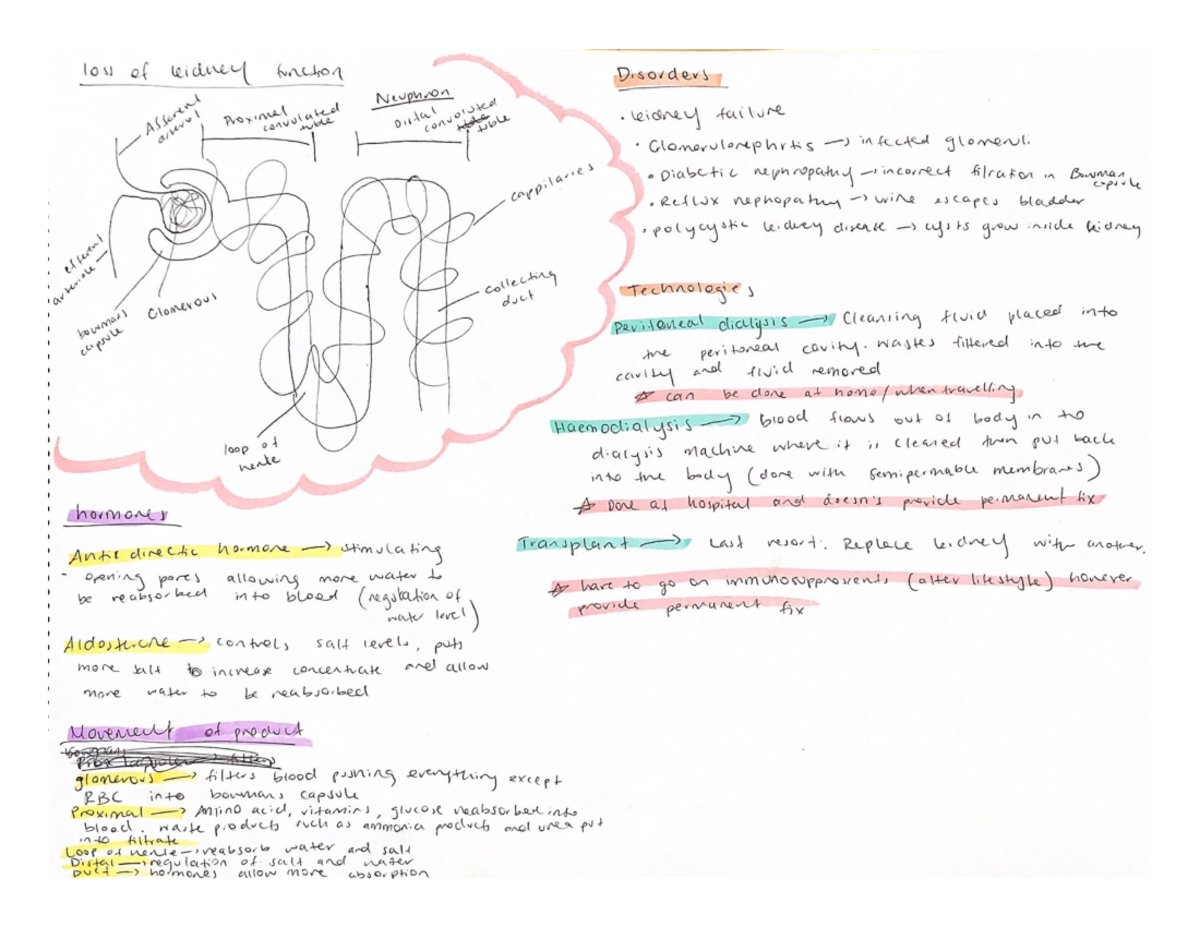 loss of kidney function
Afferent
arteriol
Proximal
convoluted
tuble
Neuphron
Distal
convoluted
tuble
cappilaries
efferent
arteriole
bowmans
capsule
Glomerous
collecting
duct
loop of
henle
hormones
Anti directic hormone → stimulating
opening pores allowing more water to
be reabsorbed into blood (regulation of
water level)
Aldosterone → controls salt levels, puts
more salt to increase concentrate and allow
more water to be reabsorbed
Movement of product
glomerous → filters blood pushing everything except
RBC into bowmans capsule
Proximal → Amino acid, vitamins, glucose reabsorbed into
blood. waste products such as ammonia products and urea put
into filtrate
Loop of henle → reabsorb water and salt
Distal → regulation of salt and water
Duct → hormones allow more absorption
Disorders
• kidney failure
• Glomerulonephrtis → infected glomeruli
• Diabetic nephropathy → incorrect filration in Bowman
capsule
• Reflux nephopathy → urine escapes bladder
• polycystic kidney disease → cysts grow inside kidney
Technologies
Peritoneal dialysis → Cleansing fluid placed into
the peritoneal cavity. Wastes filtered into the
cavity and fluid removed
☆ can be done at home/when travelling
Haemodialysis → blood flows out of body in to
dialysis machine where it is cleared then put back
into the body (done with semipermable membranes)
☆ Done at hospital and doesn's provide permanent fix
Transplant → Last resort. Replace kidney with another.
☆ have to go on immunosuppresents (alter lifestyle) however
provide permanent fix